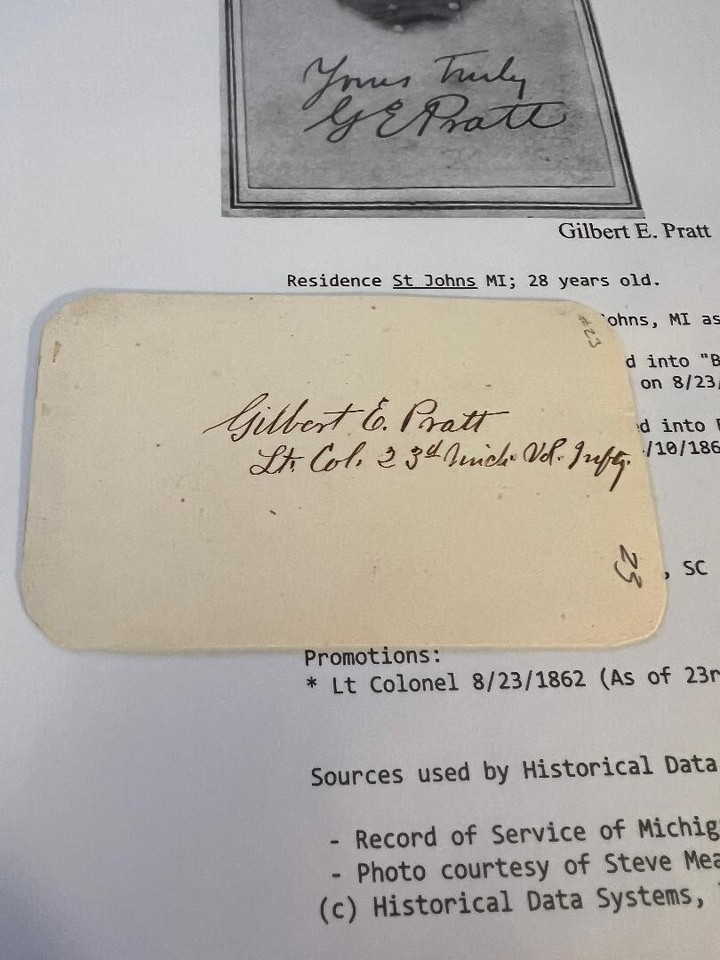 Yours Truly
G E Pratt
Gilbert E. Pratt
Residence St Johns MI; 28 years old.
#23
ohns, MI as
d into "B
on 8/23/
Gilbert E. Pratt
Lt. Col. 23d Mich. Vol. Infty.
d into
/10/186
23
, SC
Promotions:
* Lt Colonel 8/23/1862 (As of 23r
Sources used by Historical Data
- Record of Service of Michig
- Photo courtesy of Steve Mea
(c) Historical Data Systems,